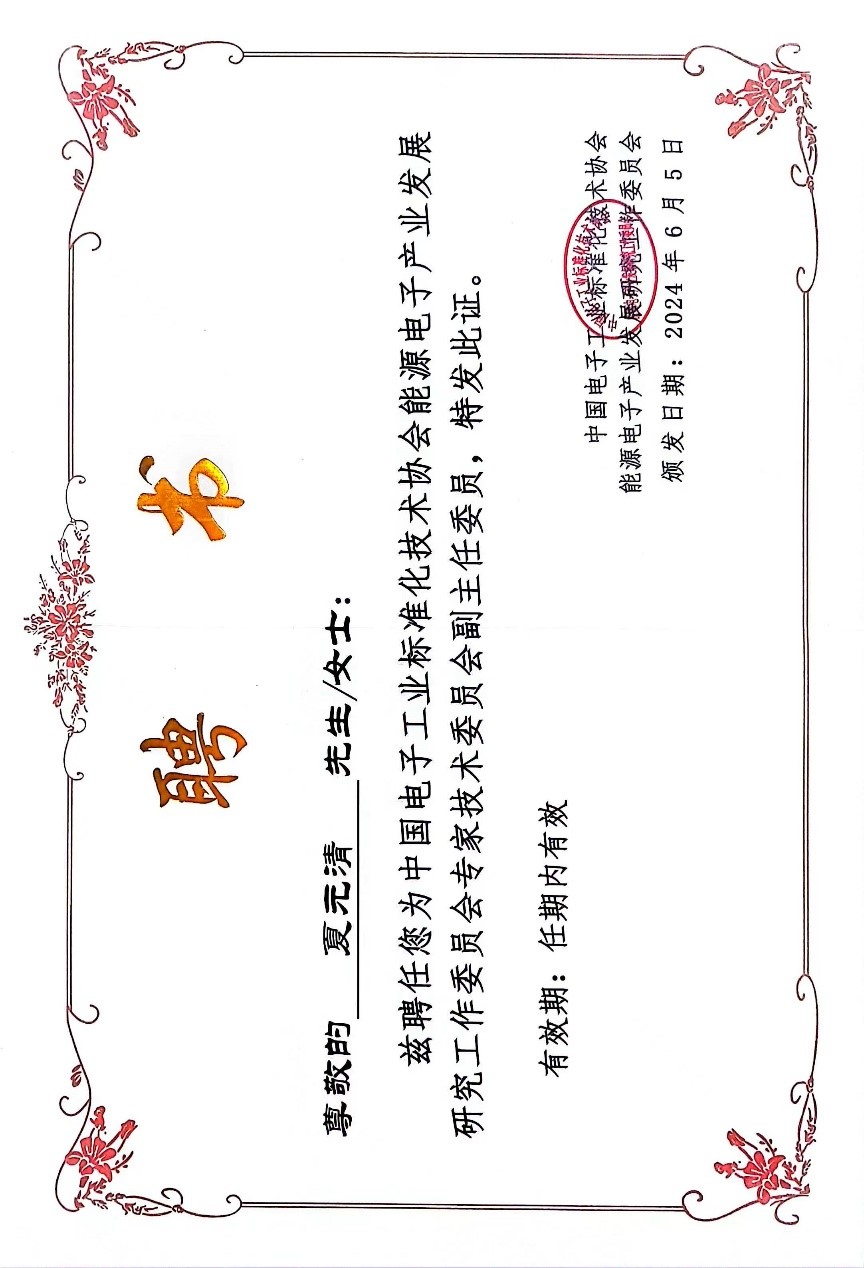 聘书
尊敬的 夏元清 先生/女士：
兹聘任您为中国电子工业标准化技术协会能源电子产业发展
研究工作委员会专家技术委员会副主任委员，特发此证。
有效期：任期内有效
中国电子工业标准化技术协会
能源电子产业发展研究工作委员会
颁发日期：2024年6月5日